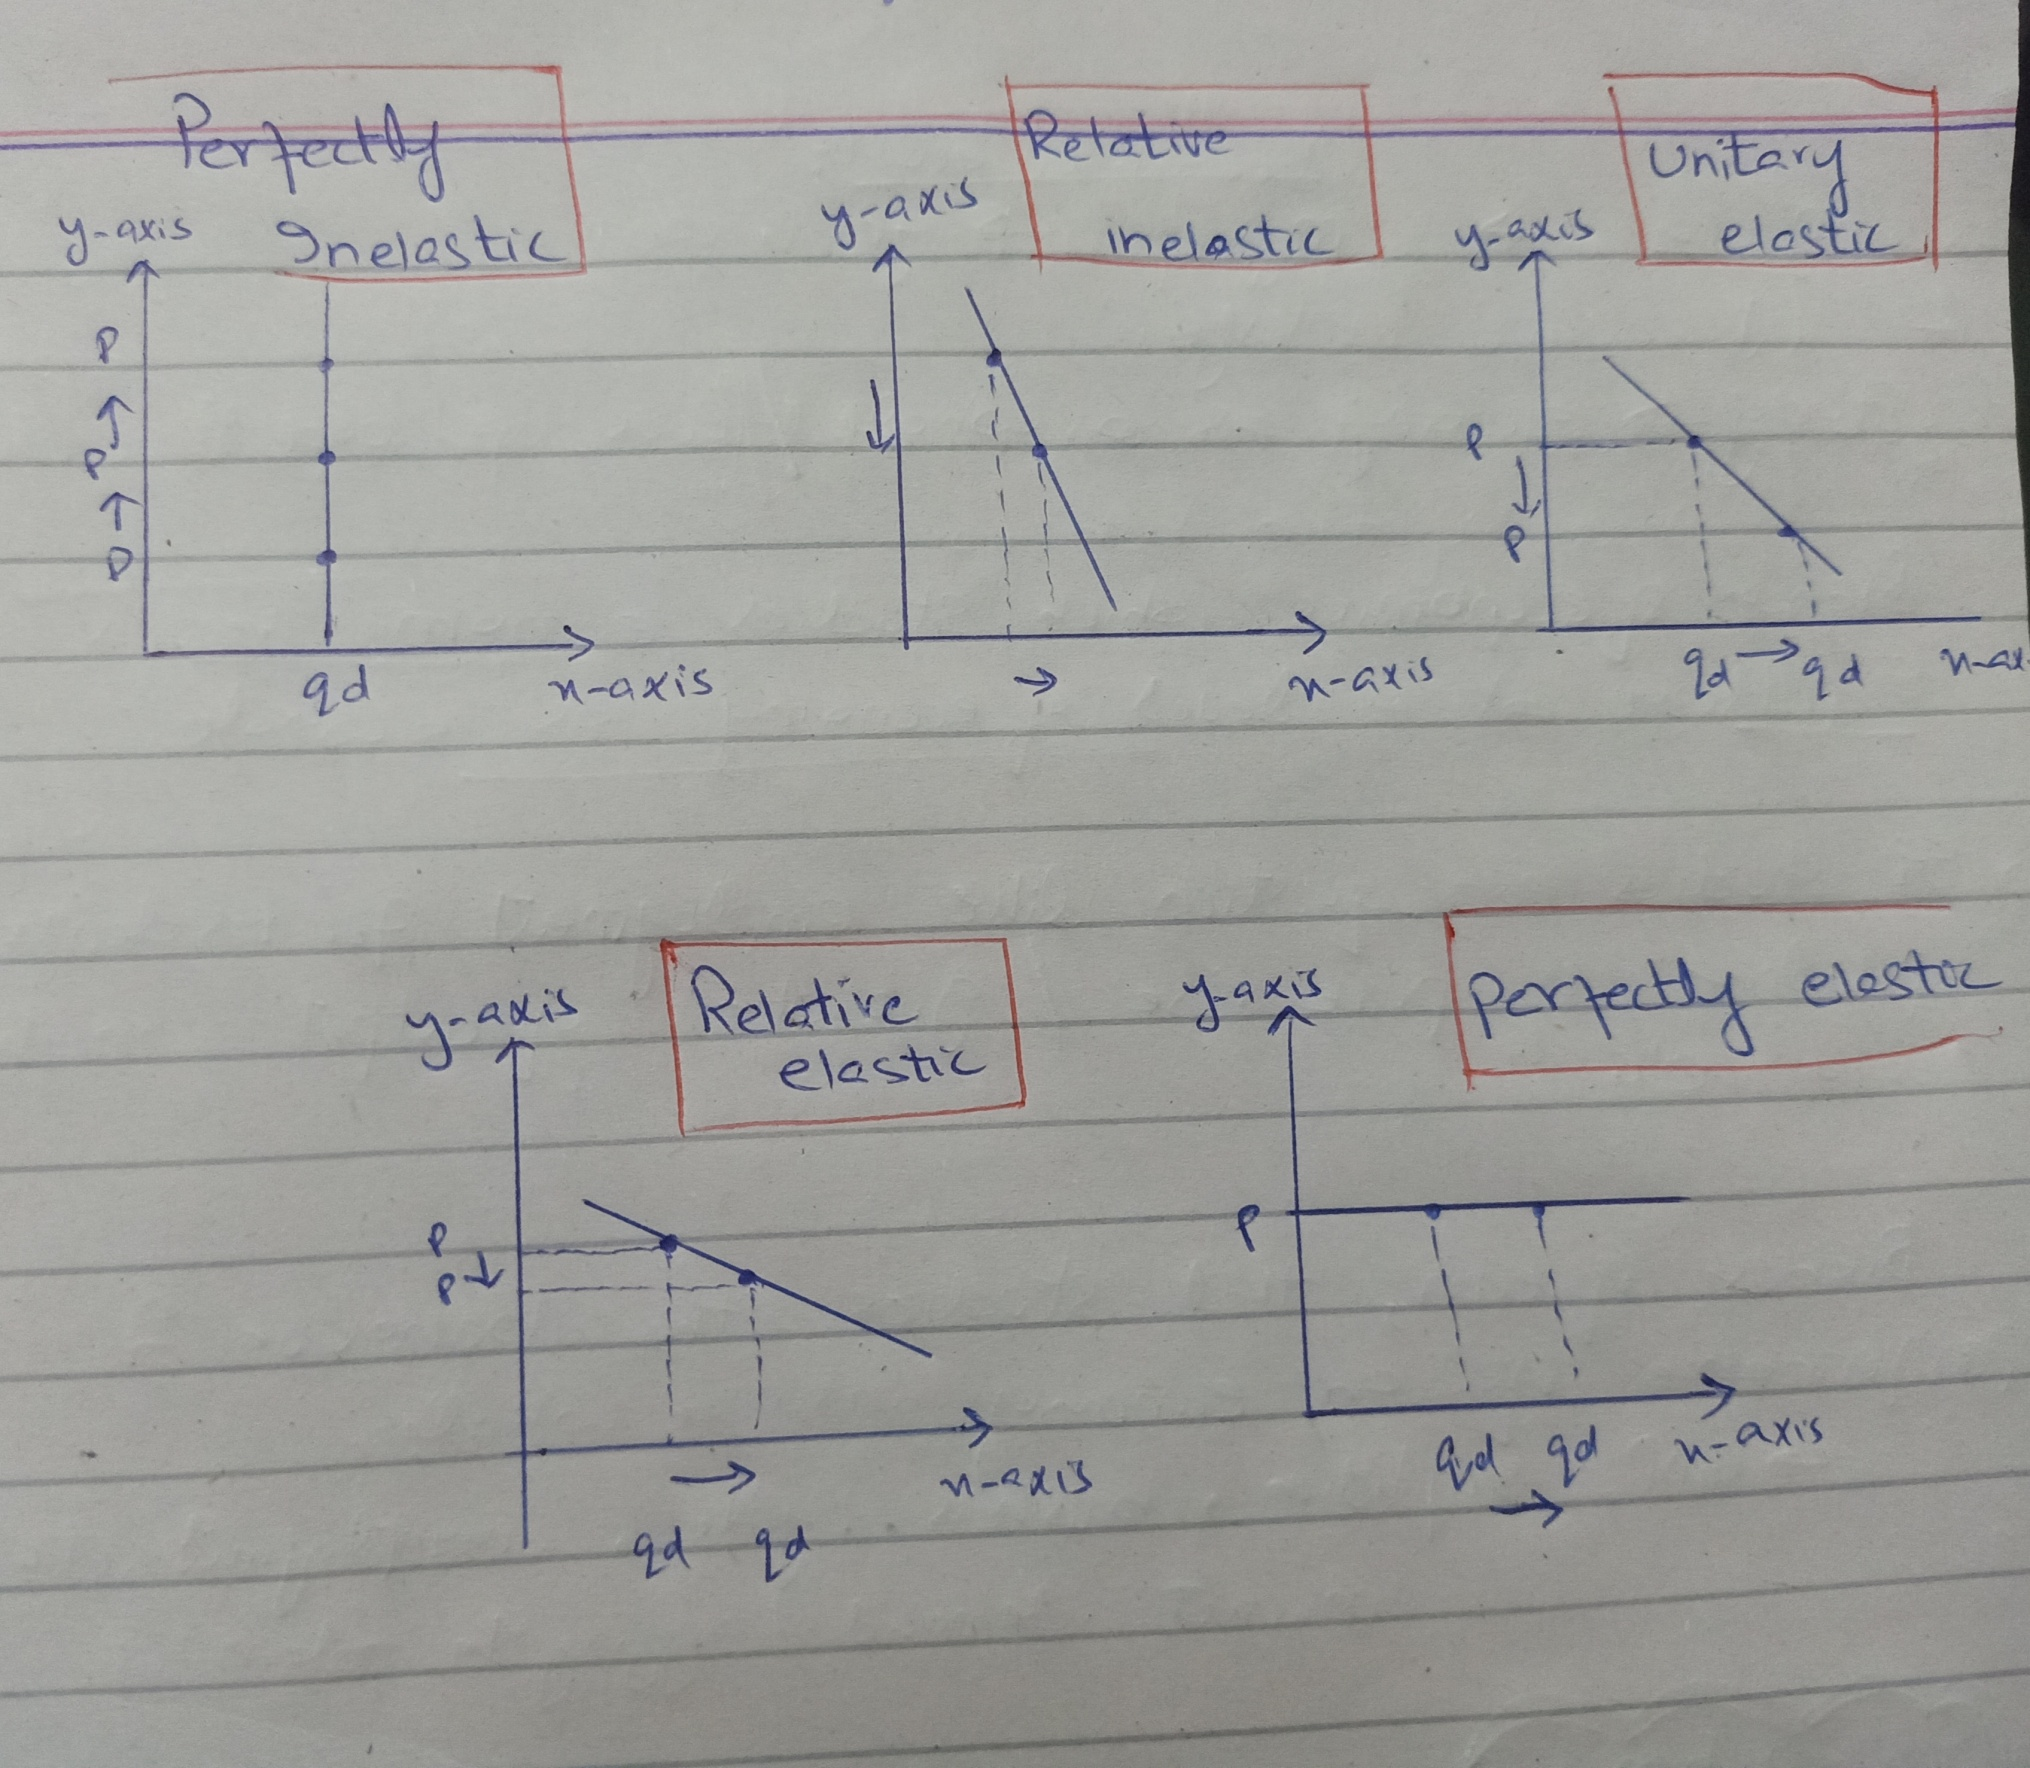 Perfectly
Inelastic
y-axis
P
↑
P
↑
P
qd
x-axis
Relative
inelastic
y-axis
↓
→
x-axis
Unitary
elastic
y-axis
P
↓
P
qd → qd
x-ax
Relative
elastic
y-axis
P
P ↓
→
x-axis
qd qd
Perfectly elastic
y-axis
P
qd qd
→
x-axis